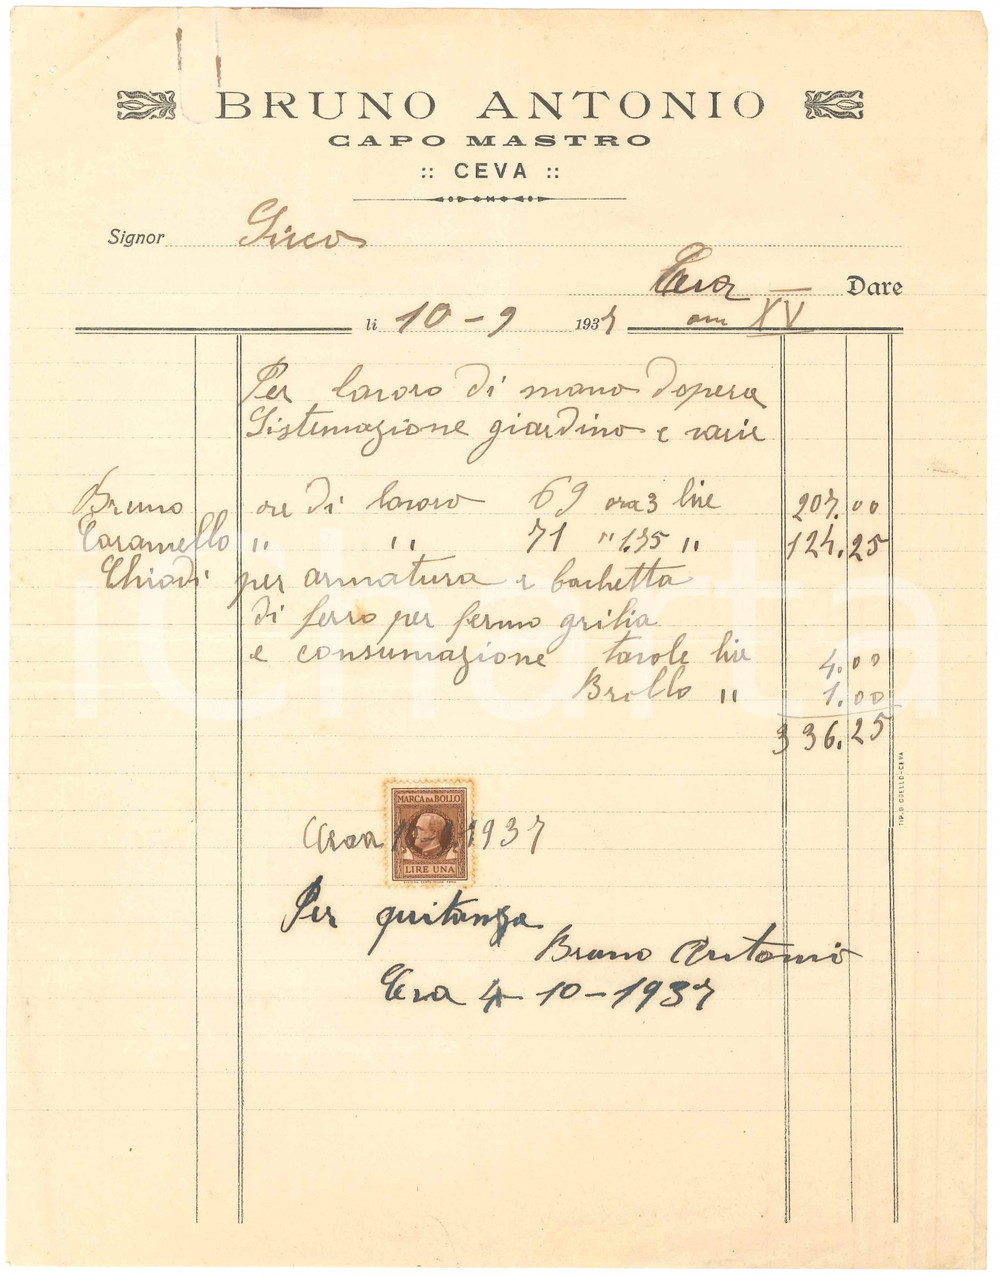 BRUNO ANTONIO
CAPO MASTRO
:: CEVA ::
Signor Sireos
Ceva — Dare
li 10 - 9 1937 ann XV
Per lavoro di mano dopera
Sistemazione giardino e varie
Bruno ore di lavoro 69 ora 3 lire 207.00
Caramello " " 71 " 1.75 " 124.25
Chiodi per armatura e bachetta
di ferro per fermo grilia
e consumazione tavole lire 4.00
Brollo " 1.00
336.25
TIP. G. ODELLO-CEVA
MARCA DA BOLLO
Ceva 1937
LIRE UNA
Per quitanza
Bruno Antonio
Ceva 4-10-1937
icharta